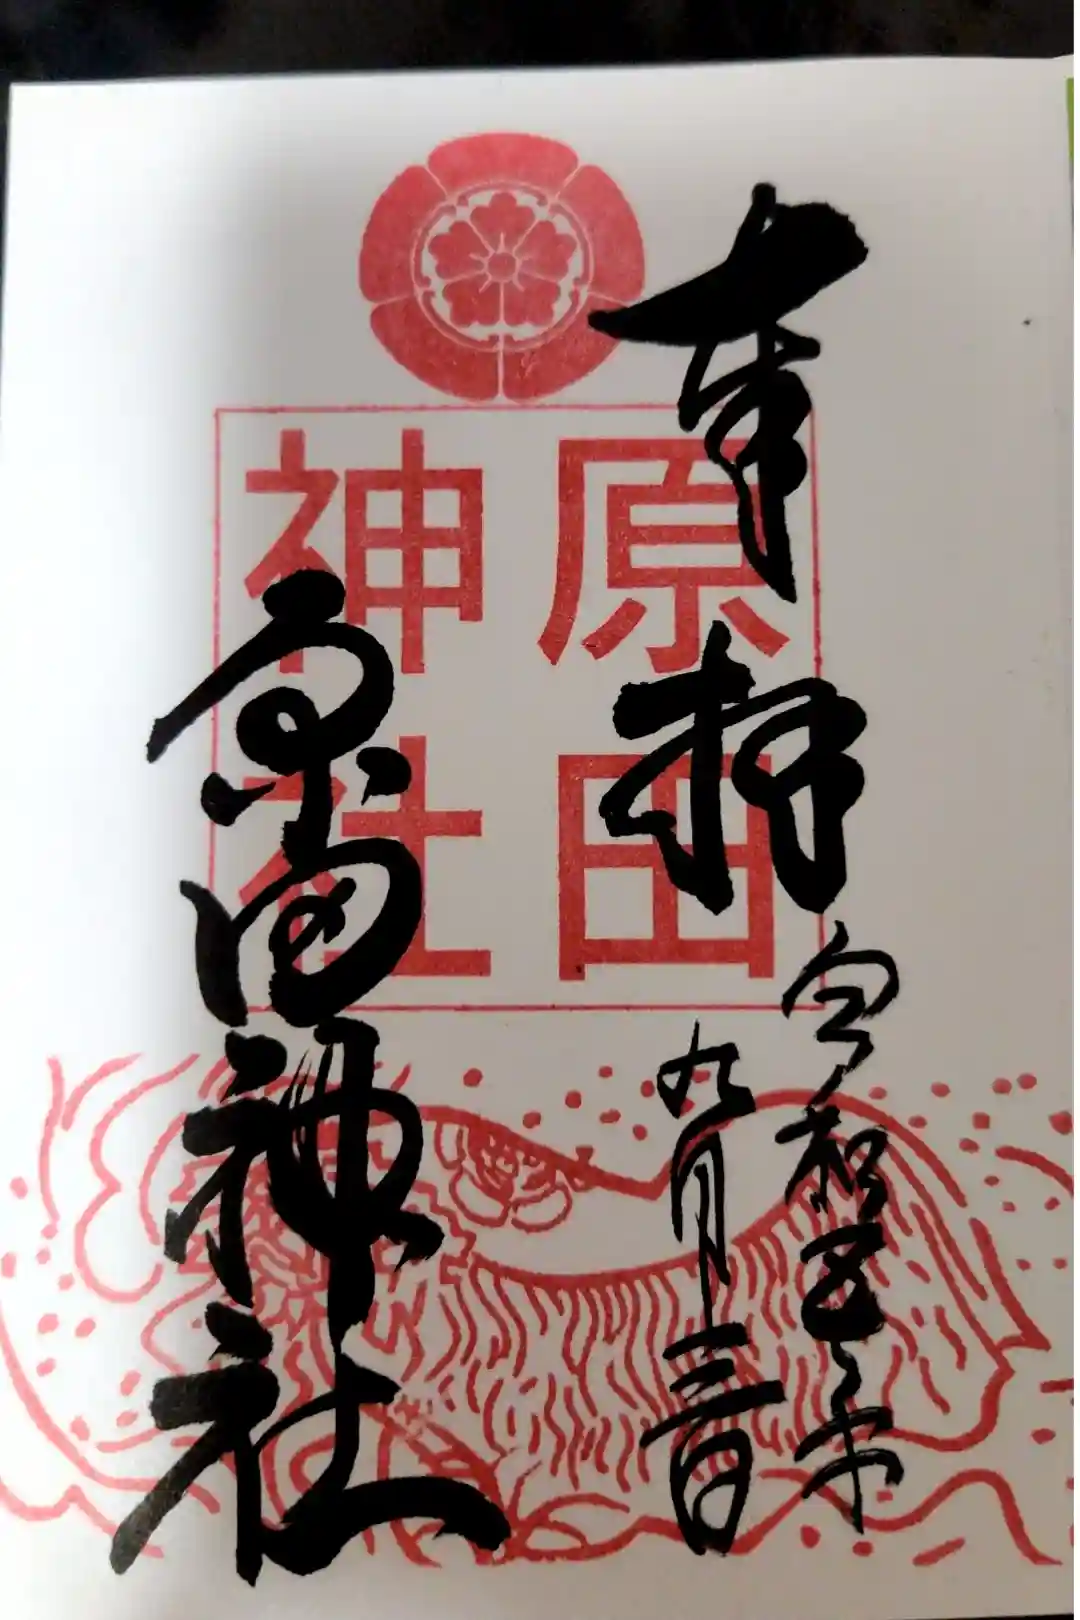 奉拝
令和五年
九月三日
原田
神社
原田神社